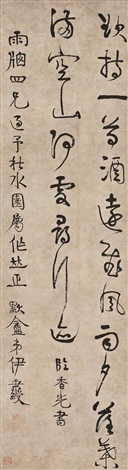 欲持一尊酒遠慰風雨夕落葉
滿空山何處尋行迹 臨香光書
雨胸四兄過予秋水園屬作並正 默盦弟伊秉綬